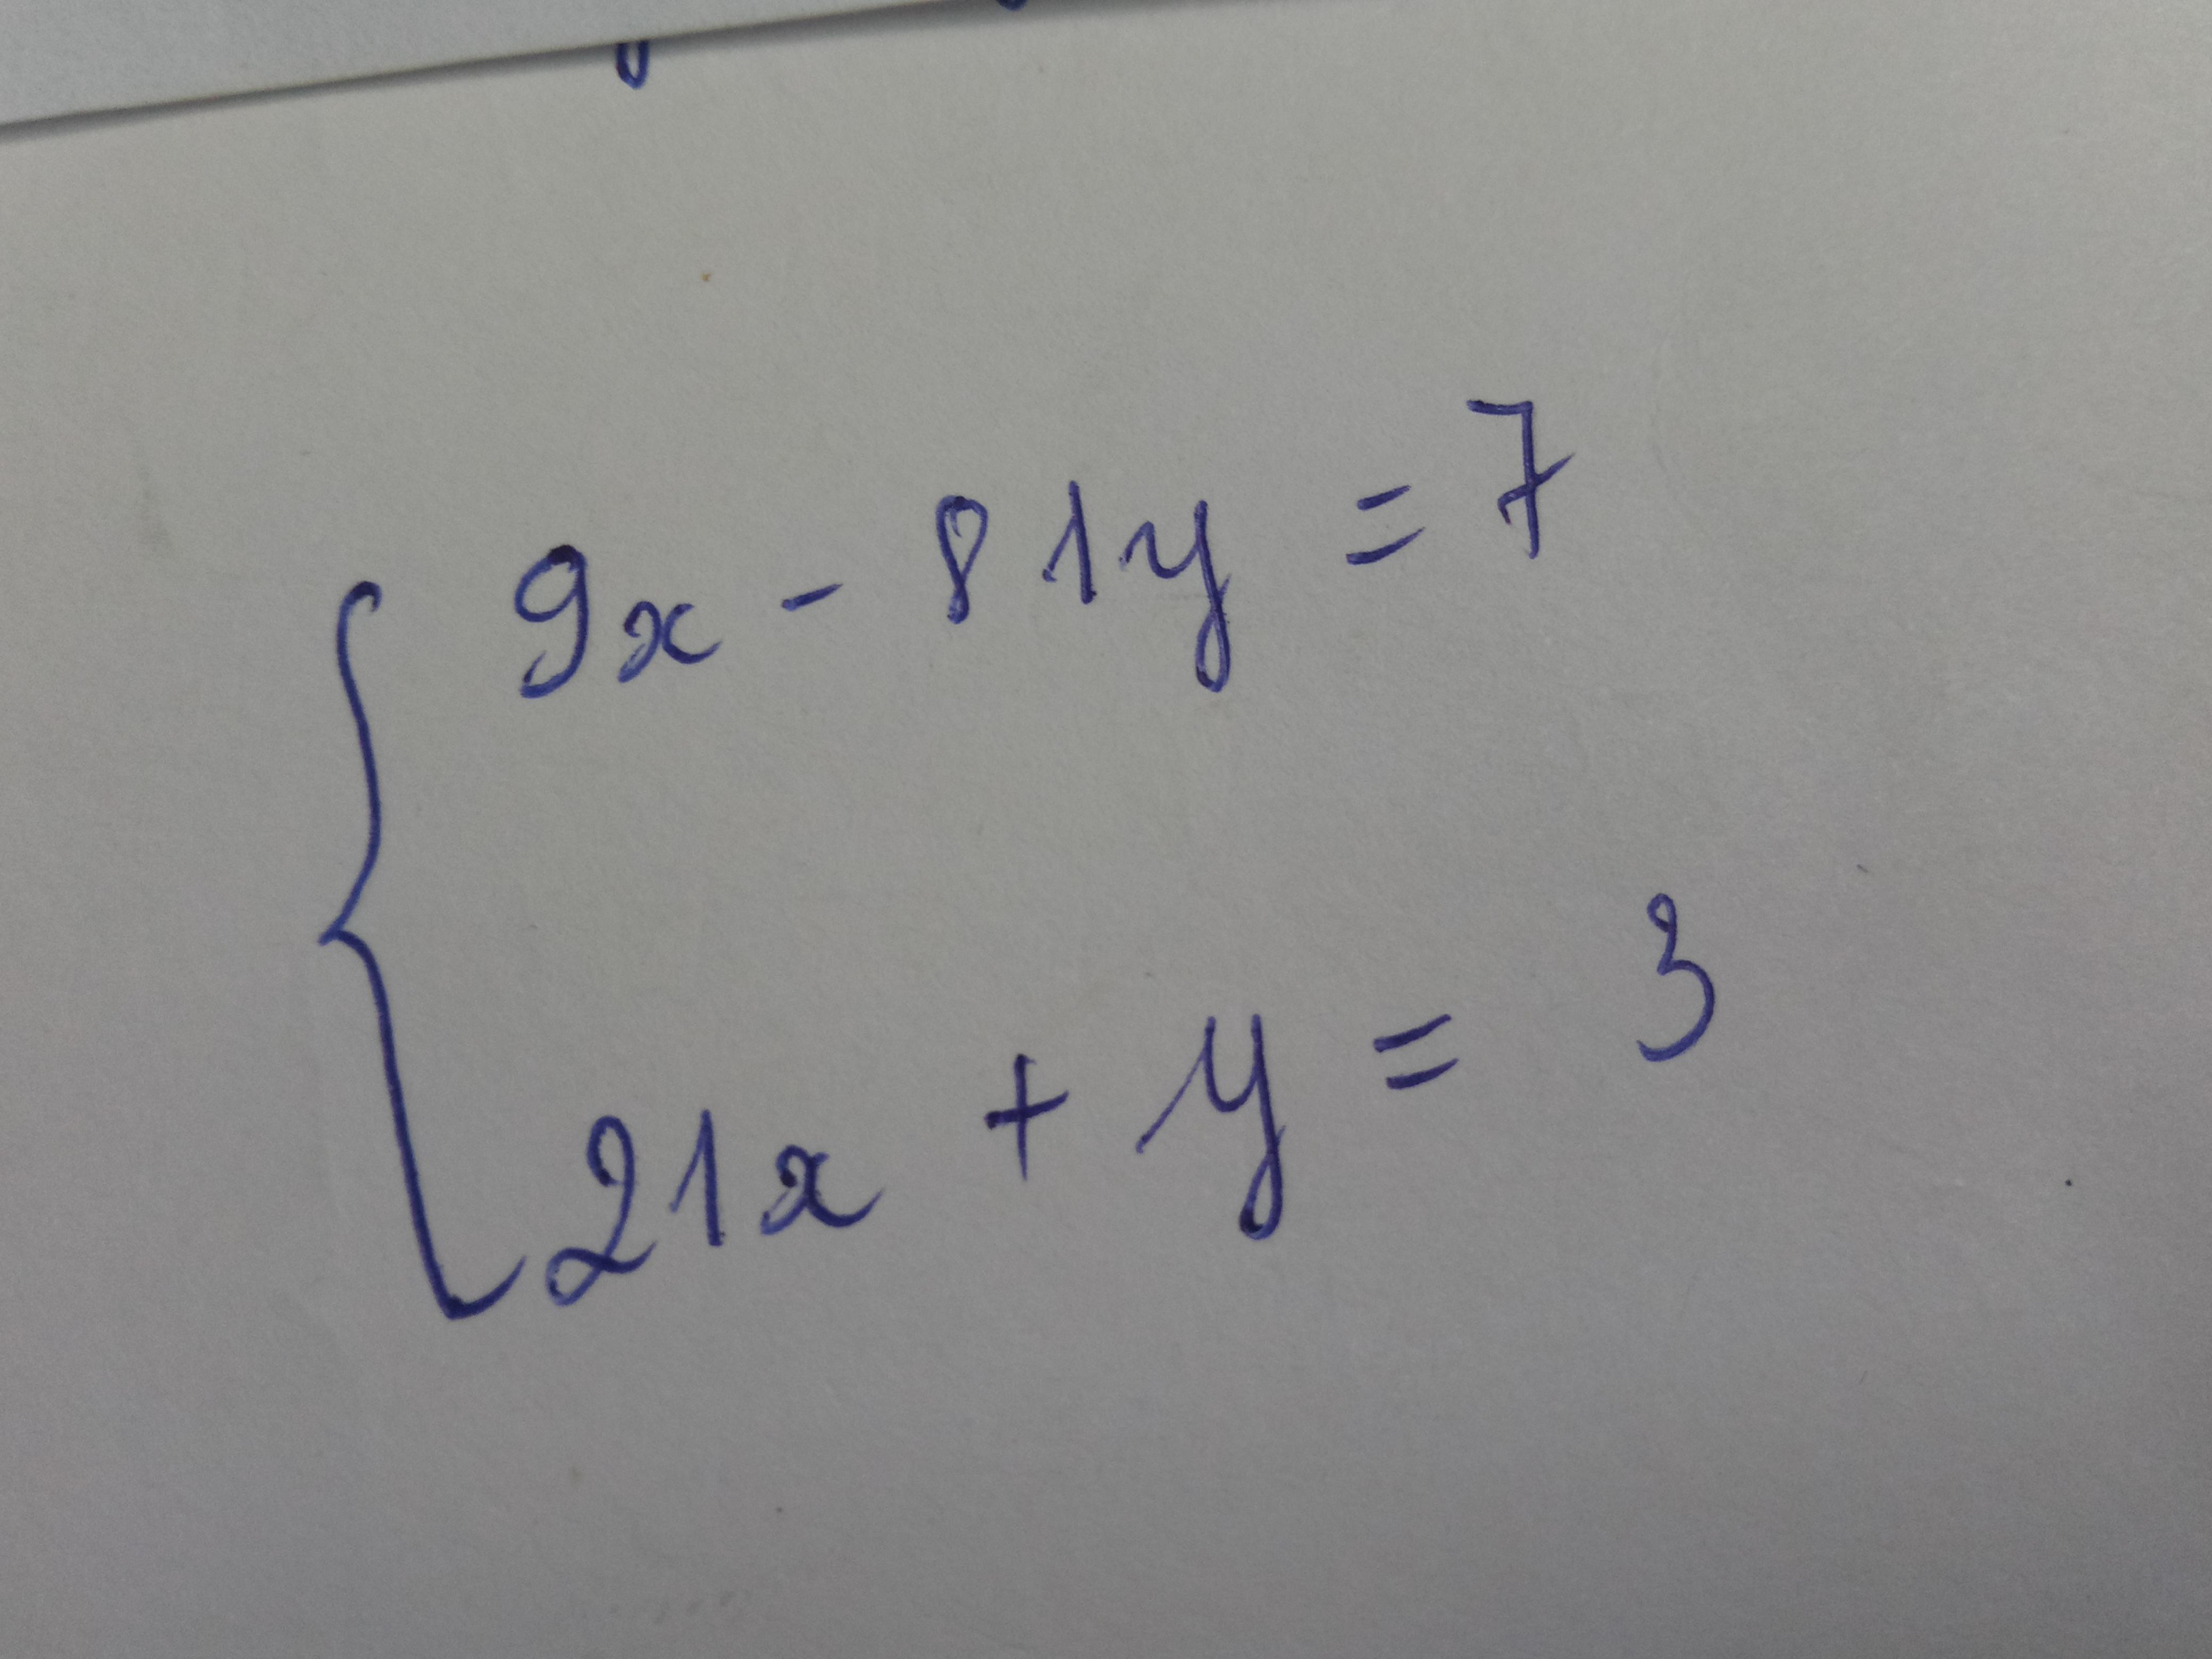 9x - 81y = 7
21x + y = 3